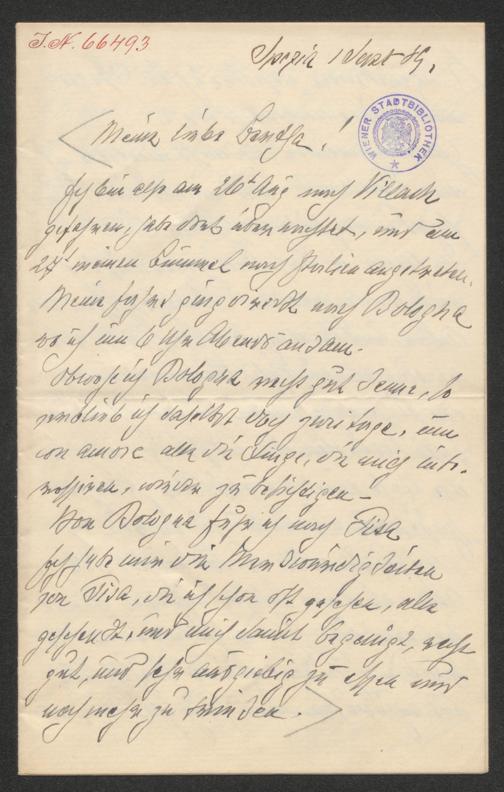 J.N. 66493
Spezia 1 Sept 89.
WIENER STADTBIBLIOTHEK
Meine liebe Bertha!
Ich bin also am 26t Aug nach Villach
gefahren, habe dort übernachtet, und am
27t meinen Bummel nach Italien angetreten.
Meine Fahrt ging direkt nach Bologna
wo ich um 6 Uhr Abends ankam.
Obwohl ich Bologna recht gut kenne, so
verblieb ich daselbst doch zwei Tage, um
con amore alle die Dinge, die mich inte-
ressiren, wieder zu besichtigen –
Von Bologna fuhr ich nach Pisa
Ich habe mir die Merkwürdigkeiten
von Pisa, die ich schon oft gesehen, alle
geschenkt, und mich damit begnügt, recht
gut, und sehr ausgiebig zu essen und
noch mehr zu trinken.